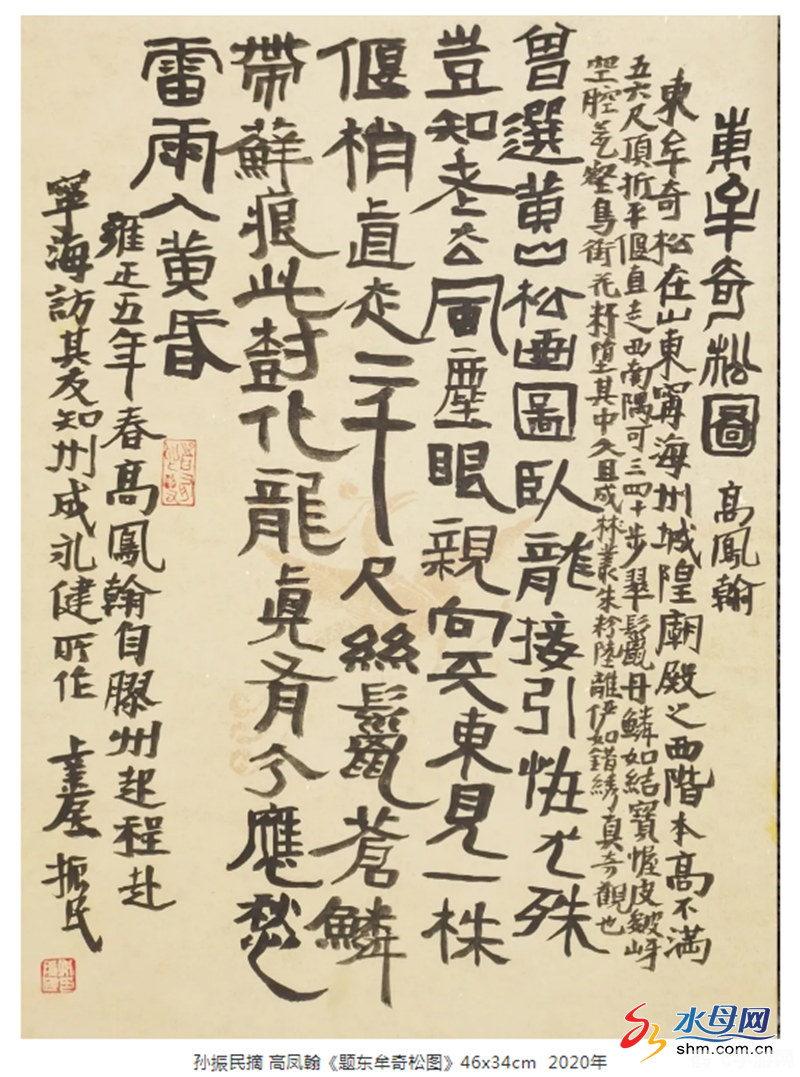 東牟奇松圖 高鳳翰
東牟奇松在山東寧海州城隍廟殿之西階本高不滿
五六尺頂折平偃直走西南隅可三四十步翠鬣丹鱗如結寶幄皮皴岈
空腔羌壑鳥銜花籽墮其中久且成林叢朱粉陸離伊如錯綉真奇觀也
曾選黄山松畫圖臥龍接引恠尤殊
豈知老去風塵眼親向天東見一株
偃梢直走二千尺絲鬣蒼鱗
帶蘚痕此樹化龍真有今應愁
雷雨入黄昏
雍正五年春高鳳翰自膠州起程赴
寧海訪其友知州成永健所作 振民
水母网
shm.com.cn
孙振民摘 高凤翰《题东牟奇松图》46x34cm 2020年